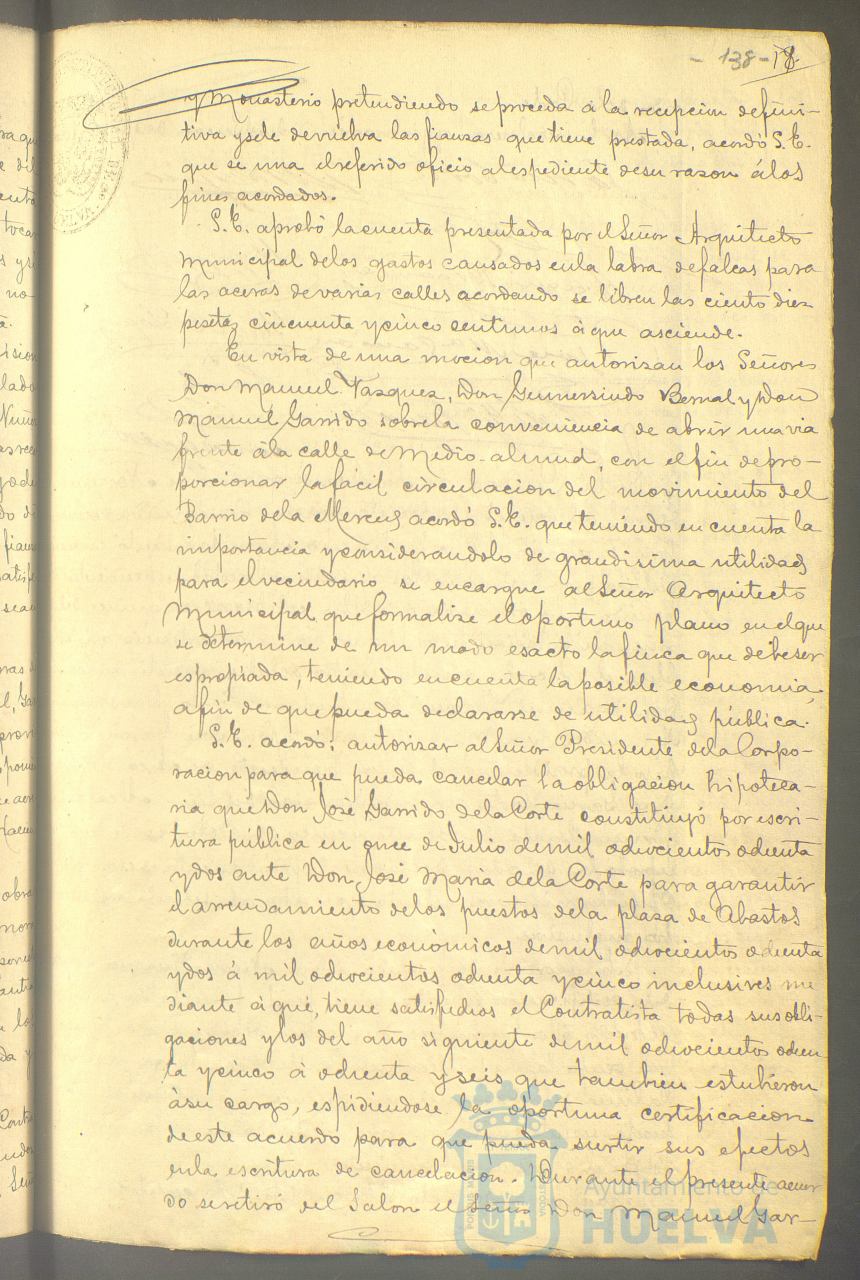 - 138 - 18
y Monasterio pretendiendo se proceda á la recepcion defini-
tiva y se le devuelva las fianzas que tiene prestada, acordó S. E.
que se una el referido oficio al espediente de su razon á los
fines acordados.
S. E. aprobó la cuenta presentada por el Señor Arquitecto
Municipal de los gastos causados en la labra de falcas para
las aceras de varias calles acordando se libren las ciento diez
pesetas cincuenta y cinco centimos á que asciende.
En vista de una mocion que autorizan los Señores
Don Manuel Vazquez, Don Gumersindo Bernal y Don
Manuel Garrido sobre la conveniencia de abrir una via
frente á la calle de Medio-almud, con el fin de pro-
porcionar la fácil circulacion del movimiento del
Barrio de la Merced acordó S. E. que teniendo en cuenta la
importancia y considerandolo de grandisima utilidad
para el vecindario se encargue al Señor Arquitecto
Municipal que formalize el oportuno plano en el que
se determine de un modo esacto la finca que debe ser
espropiada, teniendo en cuenta la posible economia,
a fin de que pueda declararse de utilidad pública.
S. E. acordó: autorizar al Señor Presidente de la Corpo-
racion para que pueda cancelar la obligacion hipoteca-
ria que Don José Garrido de la Corte constituyó por escri-
tura pública en once de Julio de mil ochocientos ochenta
y dos ante Don José Maria de la Corte para garantir
el arrendamiento de los puestos de la plaza de Abastos
durante los años económicos de mil ochocientos ochenta
y dos á mil ochocientos ochenta y cinco inclusives me
diante á que, tiene satisfechos el Contratista todas sus obli-
gaciones y los del año siguiente de mil ochocientos ochen-
ta y cinco á ochenta y seis que tambien estubieron
á su cargo, espidiendose la oportuna certificacion
de este acuerdo para que pueda surtir sus efectos
en la escritura de cancelacion. Durante el presente acuer
do se retiró del Salon el Señor Don Manuel Gar-
Ayuntamiento de
HUELVA